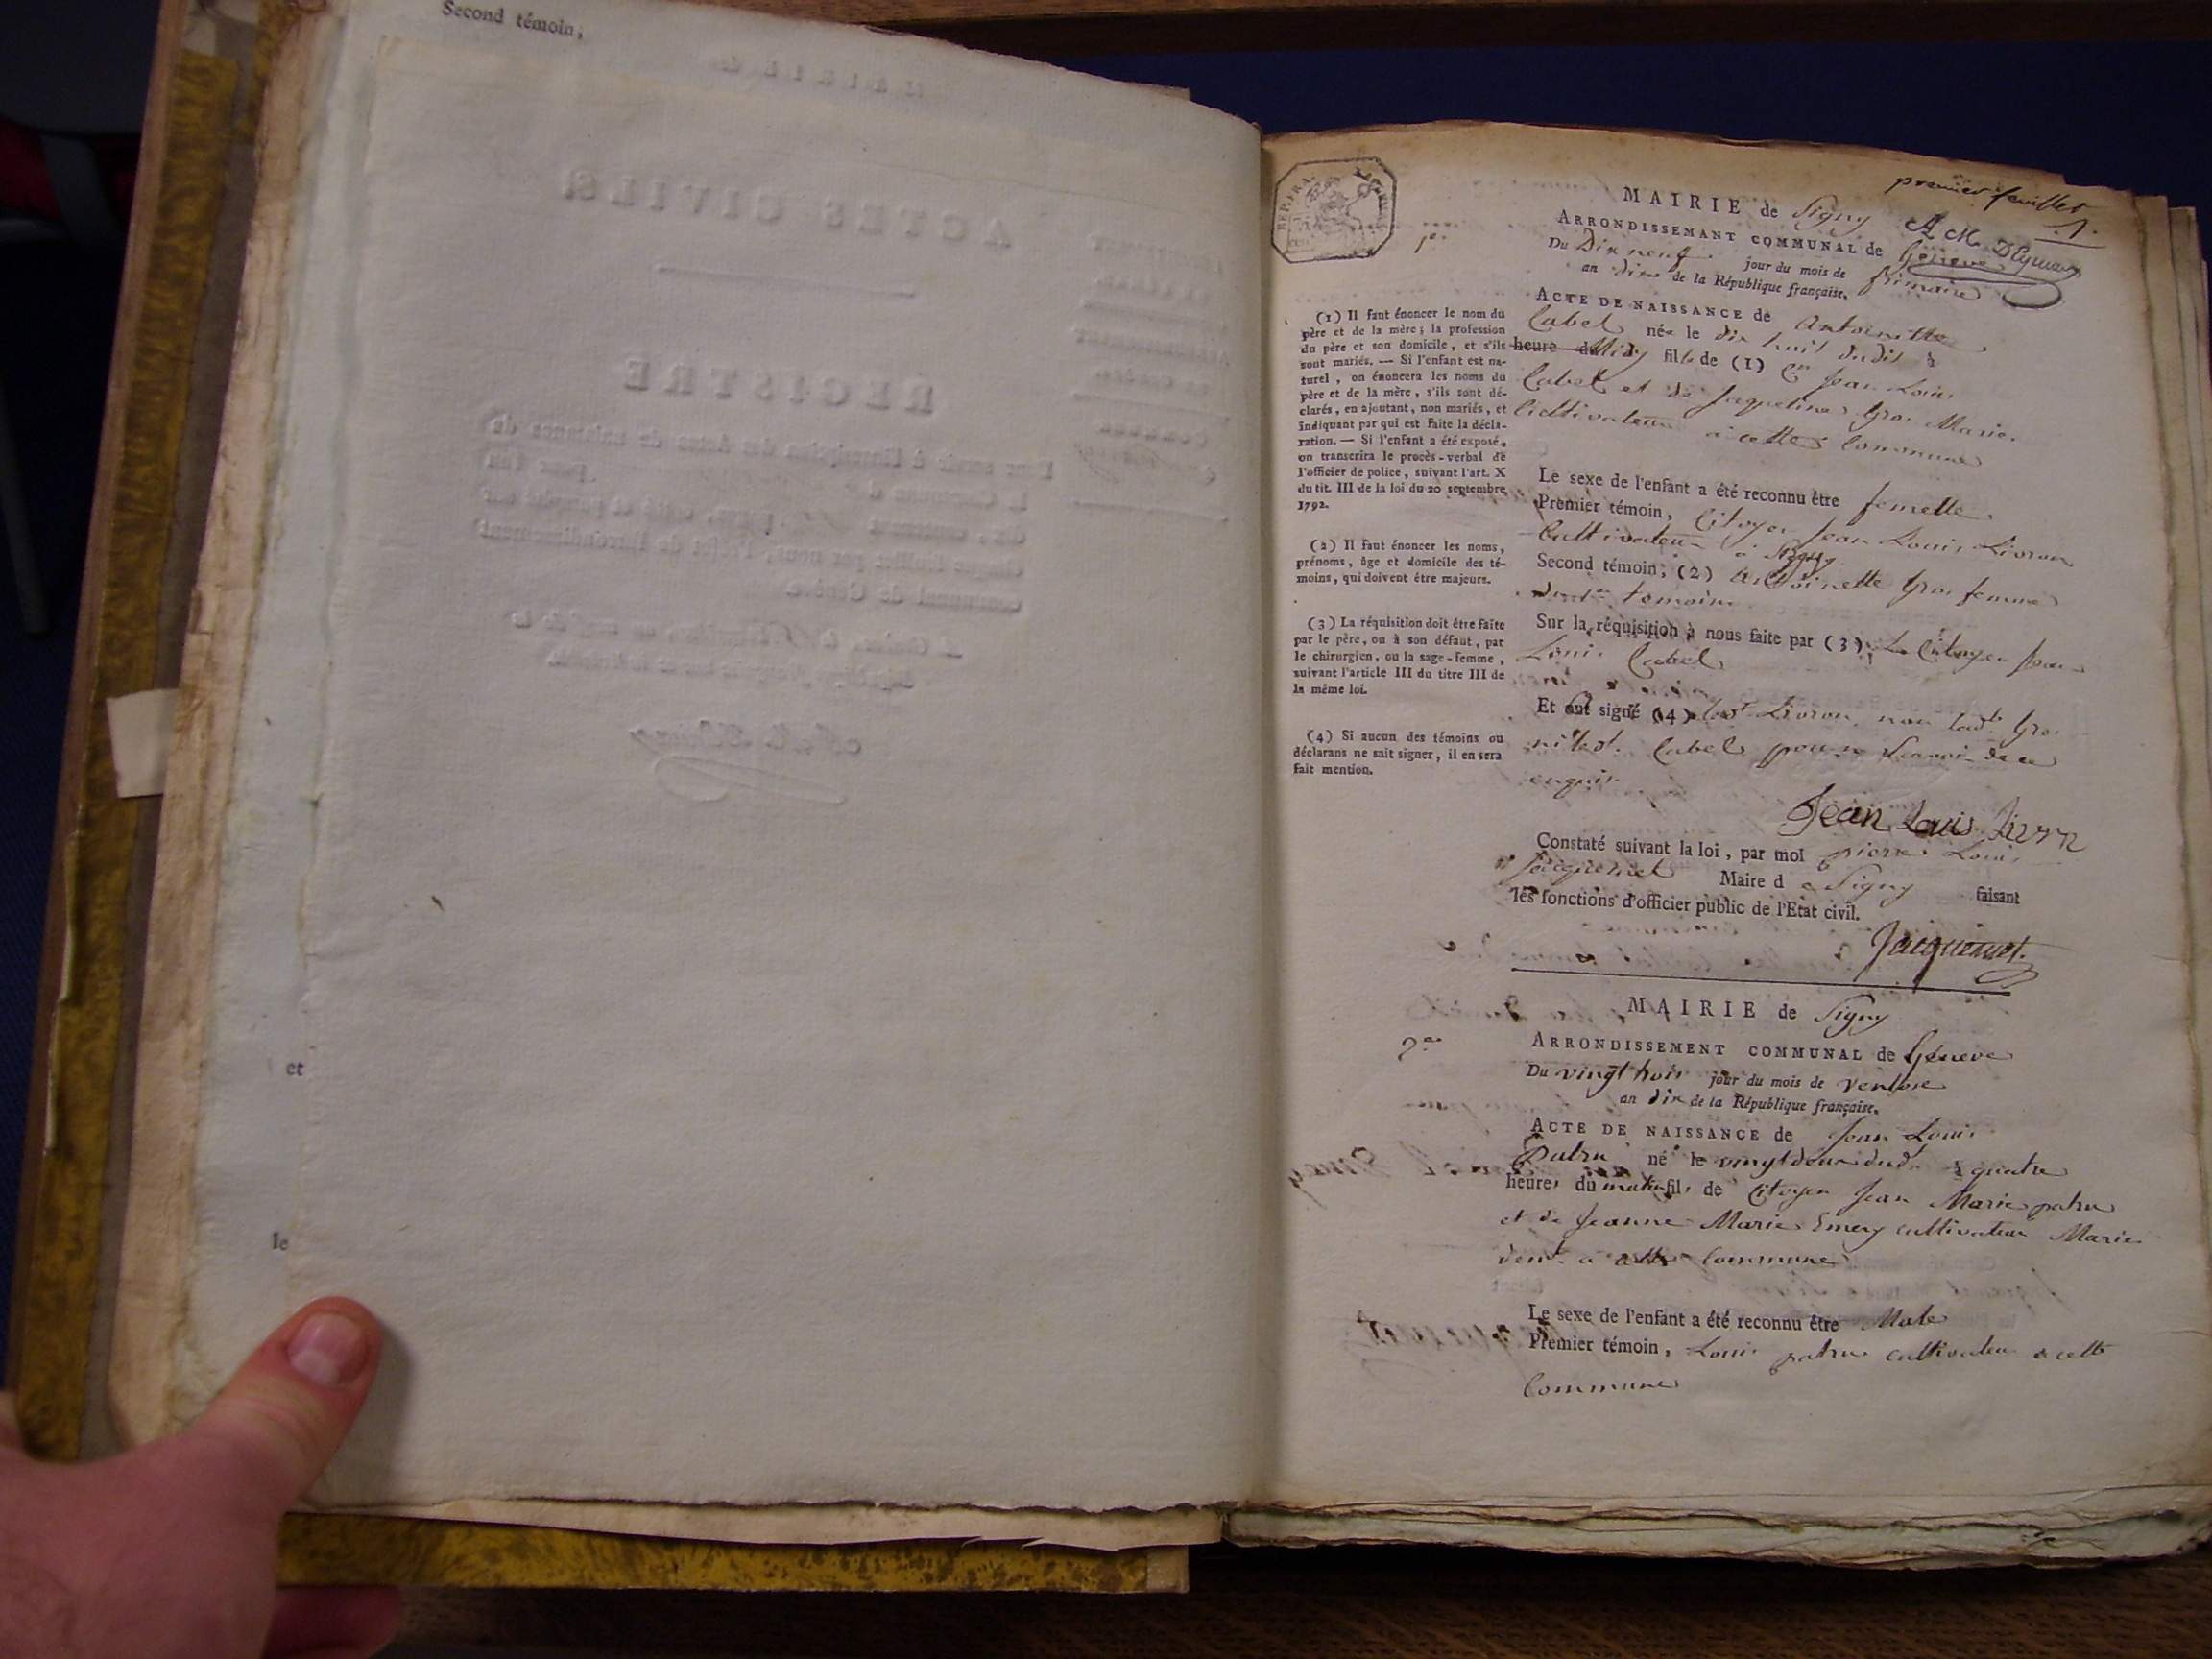 Second témoin,
et
le
premier feuillet
1.
MAIRIE de Signy
ARRONDISSEMANT COMMUNAL de Geneve
Du Dix neuf jour du mois de frimaire
an dix de la République française.
1er
ACTE DE NAISSANCE de Antoinette
Cabel née le dix huit dudit à
heure du Midy fille de (1) Cen Jean Louis
Cabel et de Jaqueline Gros Mariés
Cultivateur à cette Commune
Le sexe de l'enfant a été reconnu être femelle
Premier témoin, Citoyen Jean Louis Livron
Cultivateur à Signy
Second témoin; (2) Antoinette Gros femme
dudt temoin
Sur la réquisition à nous faite par (3) Le Citoyen Jean
Louis Cabel
Et ont signé (4) ledt Livron, non ladte Gros
ni ledt Cabel pour ne Scavoir de ce
enquis
Jean Louis Livron
Constaté suivant la loi, par moi pierre Louis
Jacquemet Maire d e Signy faisant
les fonctions d'officier public de l'Etat civil.
Jacquemet.
(1) Il faut énoncer le nom du
père et de la mère; la profession
du père et son domicile, et s'ils
sont mariés. — Si l'enfant est na-
turel, on énoncera les noms du
père et de la mère, s'ils sont dé-
clarés, en ajoutant, non mariés, et
indiquant par qui est faite la décla-
ration. — Si l'enfant a été exposé,
on transcrira le procès-verbal de
l'officier de police, suivant l'art. X
du tit. III de la loi du 20 septembre
1792.
(2) Il faut énoncer les noms,
prénoms, âge et domicile des té-
moins, qui doivent être majeurs.
(3) La réquisition doit être faite
par le père, ou à son défaut, par
le chirurgien, ou la sage-femme,
suivant l'article III du titre III de
la même loi.
(4) Si aucun des témoins ou
déclarans ne sait signer, il en sera
fait mention.
MAIRIE de Signy
2me
ARRONDISSEMENT COMMUNAL de Géneve
Du vingt trois jour du mois de Ventose
an dix de la République française.
ACTE DE NAISSANCE de Jean Louis
Patru né le vingt deux dud. à quatre
heures du matin fils de Citoyen Jean Marie patru
et de Jeanne Marie Emery cultivateur Mariés
demt à cette Commune
Le sexe de l'enfant a été reconnu être Male
Premier témoin, Louis patru cultivateur à cette
Commune